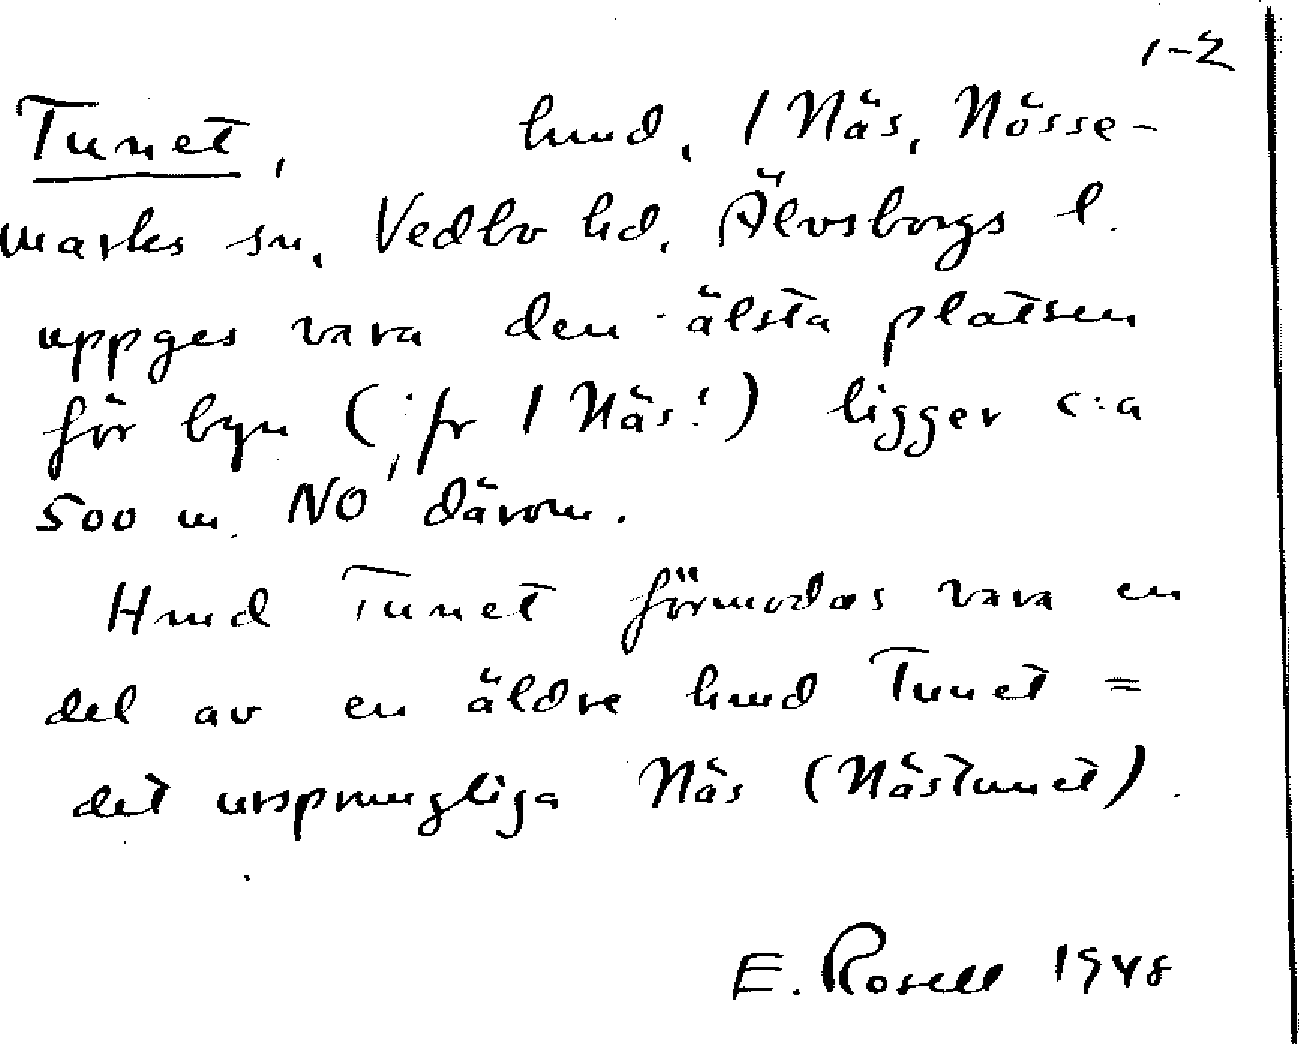 1-2
Tunet, hmd, 1 Näs, Nösse-
marks sn, Vedbo hd, Älvsborgs l.
uppges vara den älsta platsen
för byn (jfr 1 Näs!) ligger c:a
500 m. NO därom.
Hmd Tunet förmodas vara en
del av en äldre hmd Tunet =
det ursprungliga Näs (Nästunet).
E. Rosell 1948